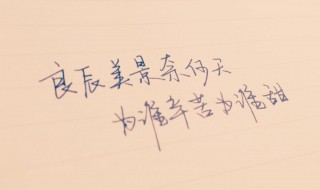 良辰美景奈何天
为谁辛苦为谁甜